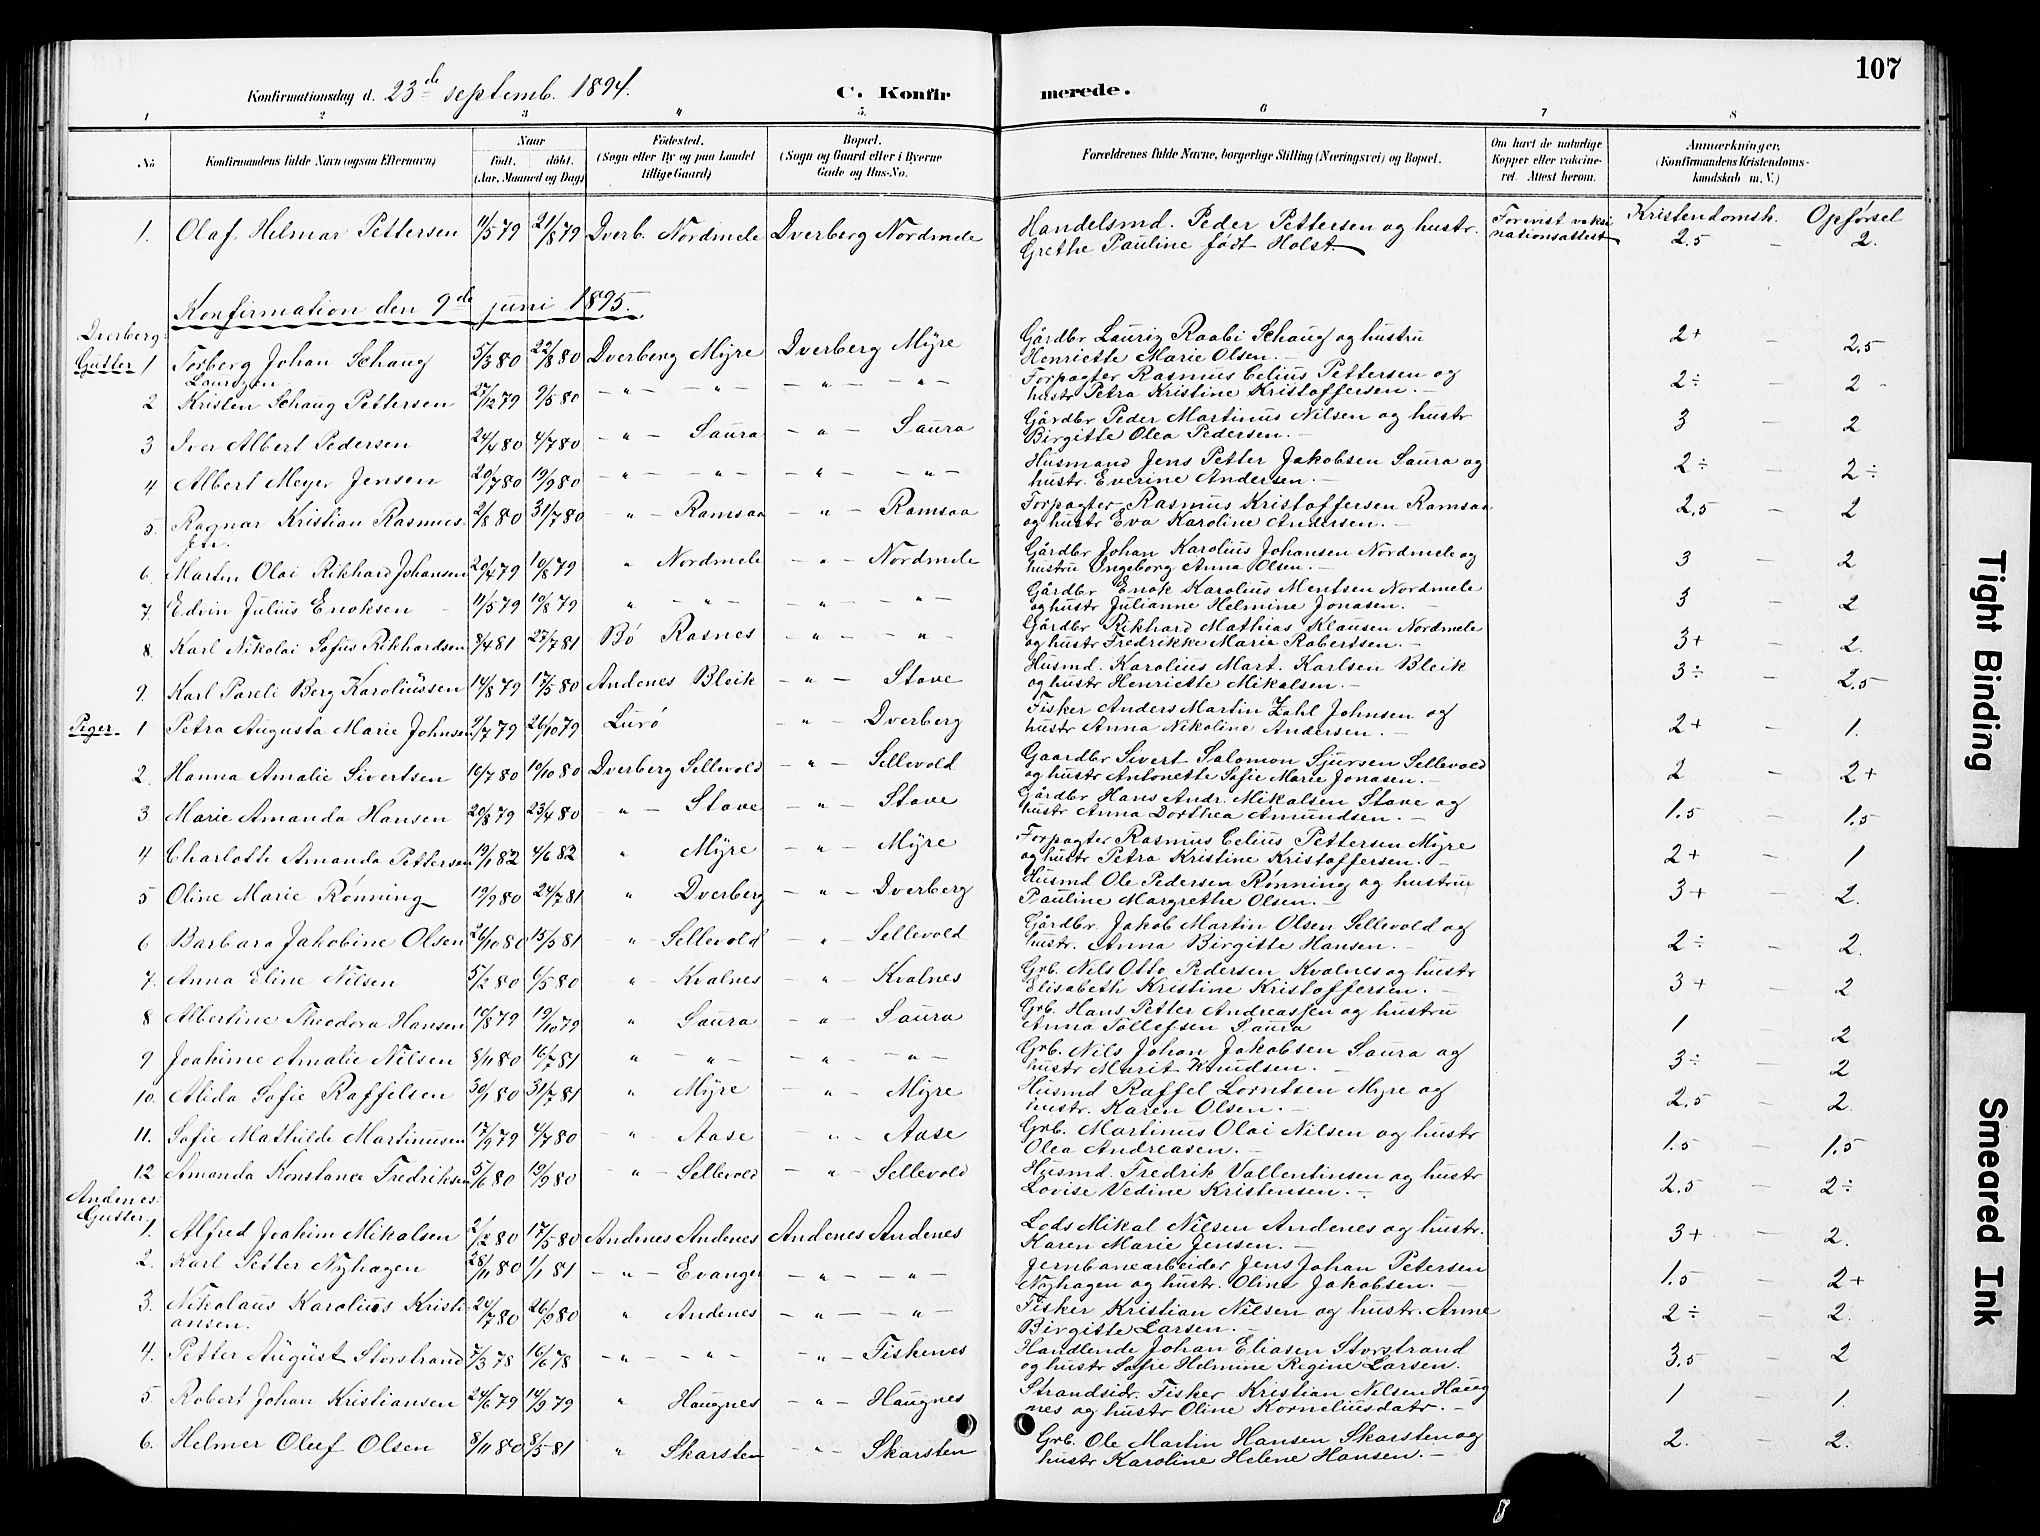 107
Konfirmationsdag d. 23de septemb. 1894. C. Konfirmerede.
1 2 3 4 5. 6 7 8
No Konfirmandens fulde Navn (ogsaa Efternavn) Naar født. døbt. (Aar, Maaned og Dag) Fødested. (Sogn eller By og paa Landet tillige Gaard) Bopæl. (Sogn og Gaard eller i Byerne Gade og Hus-No. Forældrenes fulde Navne, borgerlige Stilling (Næringsvei) og Bopæl. Om havt de naturlige Kopper eller vakcineret. Attest herom. Anmærkninger. (Konfirmandens Kristendomskundskab m. V.)
1. Olaf Helmar Pettersen 11/5 79 21/8 79 Dverb. Nordmele Dverberg Nordmele Handelsmd. Peder Pettersen og hustr. Forevist vaksi Kristendomsk. Opførsel
Grethe Pauline født Holst. nationsattest 2.5 – 2.
Konfirmation den 9de juni 1895.
Dverberg:
Gutter 1 Torberg Johan Schaug 5/3 80 22/8 80 Dverberg Myre Dverberg Myre Gårdbr Lauriz Raabi Schaug og hustru 2+ – 2.5
Laurizen Henriette Marie Olsen. –
2 Kristen Schaug Pettersen 27/12 79 9/5 80 – " – – " – – " – – " – Forpagter Rasmus Celius Pettersen og 2÷ – 2 –
hustr Petra Kristine Kristoffersen. –
3 Iver Albert Pedersen 24/4 80 4/7 80 – " – Saura – " – Saura Gårdbr Peder Martinus Nilsen og hustr 3 2
Birgitte Olea Pedersen. –
4 Albert Meyer Jensen 20/7 80 19/9 80 – " – – " – – " – – " – Husmand Jens Petter Jakobsen Saura og 2÷ – 2÷
hustr. Everine Andersen. –
5. Ragnar Kristian Rasmus- 2/8 80 31/7 80 – " – Ramsaa – " – Ramsaa Forpagter Rasmus Kristoffersen Ramsaa 2.5 – 2
sen. og hustr Eva Karoline Andersen. –
6. Martin Olai Rikhard Johansen 20/4 79 10/8 79 " Nordmele – " – Nordmele Gårdbr Johan Karolius Johansen Nordmele og 3 – 2
hustru Ingeborg Anna Olsen. –
7. Edvin Julius Enoksen 11/5 79 10/8 79 " – " – – " – – " – Gårdbr Enok Karolius Mentsen Nordmele 3 2
og hustr Julianne Helmine Jonasen. –
8. Karl Nikolai Sofus Rikhardsen 8/4 81 27/7 81 Bö Rasnes – " – – " – Gårdbr Rikhard Mathias Klausen Nordmele 3+ – 2.
og hustr Fredrikke Marie Robertsen. –
9. Karl Pareli Berg Karoliussen 14/8 79 17/5 80 Andenes Bleik – " – Stave Husmd. Karolius Mart. Karlsen Bleik 3÷ – 2.5
og hustr Henriette Mikalsen. –
Piger. 1 Petra Augusta Marie Johnsen 2/7 79 26/10 79 Lurö – " – Dverberg Fisker Anders Martin Zahl Johnsen og 2+ – 1.
hustr Anna Nikoline Andersen. –
2. Hanna Amalie Sivertsen 16/7 80 10/10 80 Dverberg Sellevold – " – Sellevold Gaardbr Sivert Salomon Sjursen Sellevold 2 – 2+
og hustr Antonette Sofie Marie Jonasen. –
3. Marie Amanda Hansen 20/8 79 23/4 80 – " – Stave – " – Stave Gårdbr Hans Andr. Mikalsen Stave og 1.5 – 1.5
hustr Anna Dorthea Amundsen. –
4 Charlotte Amanda Pettersen 19/1 82 4/6 82 " Myre – " – Myre Forpagter Rasmus Celius Pettersen Myre 2+ – 1
og hustr Petra Kristine Kristoffersen. –
5 Oline Marie Rønning 19/9 80 24/7 81 " Dverberg – " – Dverberg Husmd Ole Pedersen Rønning og hustru 3+ – 2.
Pauline Margrethe Olsen. –
6 Barbara Jakobine Olsen 26/10 80 15/5 81 " – Sellevold " Sellevold Gårdbr. Jakob Martin Olsen Sellevold og 2÷ – 2.
hustr. Anna Birgitte Hansen. –
7. Anna Eline Nilsen 5/2 80 6/5 80 " – Kvalnes " Kvalnes Grb. Nils Otto Pedersen Kvalnes og hustr 3+ – 2
Elisabeth Kristine Kristoffersen. –
8 Albertine Theodora Hansen 10/8 79 19/10 79 " Saura – " – Saura Grb. Hans Petter Andreassen og hustru 1 2
Anna Tollefsen Saura
9 Joakime Amalie Nilsen 8/11 80 16/7 81 " – " – – " – – " – Grb. Nils Johan Jakobsen Saura og 3÷ – 2
hustr Marit Knudsen. –
10. Alida Sofie Raffelsen 30/1 80 31/7 81 " Myre – " Myre Husmd Raffel Lorntsen Myre og 2.5 – 2.
hustr. Karen Olsen. –
11. Sofie Mathilde Martinusen 17/9 79 4/7 80 " – Aase – " – Aase Grb. Martinus Olai Nilsen og hustr 1.5 – 1.5
Olea Andreasen. –
12 Amanda Konstance Fredriksen 5/6 80 19/9 80 – " – Sellevold – " – Sellevold Husmd. Fredrik Vallentinsen og hustr 2.5 – 2÷
Lovise Vedine Kristensen. –
Andenes:
Gutter 1. Alfred Joakim Mikalsen 2/12 80 17/5 80 Andenes Andenes Andenes Andenes Lods Mikal Nilsen Andenes og hustr. 3+ – 2.
Karen Marie Jensen. –
2. Karl Petter Nyhagen 28/11 80 1/1 81 – " – Evanger – " – – " – Jernbanearbeider Jens Johan Petersen 1.5 – 2+
Nyhagen og hustr. Oline Jakobsen. –
3. Nikolaus Karolius Kristi- 24/7 80 26/9 80 " Andenes – " – – " – Fisker Kristian Nilsen og hustr. Anne 2÷ – 2.
ansen. Birgitte Larsen. –
4. Petter August Storstrand 7/3 78 16/6 78 – " – – " – – " – Fiskenes Handlende Johan Eliasen Storstrand 3.5 – 2
og hustr Sofie Helmine Regine Larsen.
5 Robert Johan Kristiansen 24/6 79 14/9 79 " Haugnes – " – Haugnes Strandsidr. Fisker Kristian Nilsen Haug 1 – 1.
nes og hustr Oline Korneliusdatr. –
6. Helmer Oluf Olsen 8/11 80 8/5 81 " Skarsten – " – Skarsten Grb. Ole Martin Hansen Skarsten og 2. – 2.
hustr Karoline Helene Hansen. –
Tight Binding
Smeared Ink